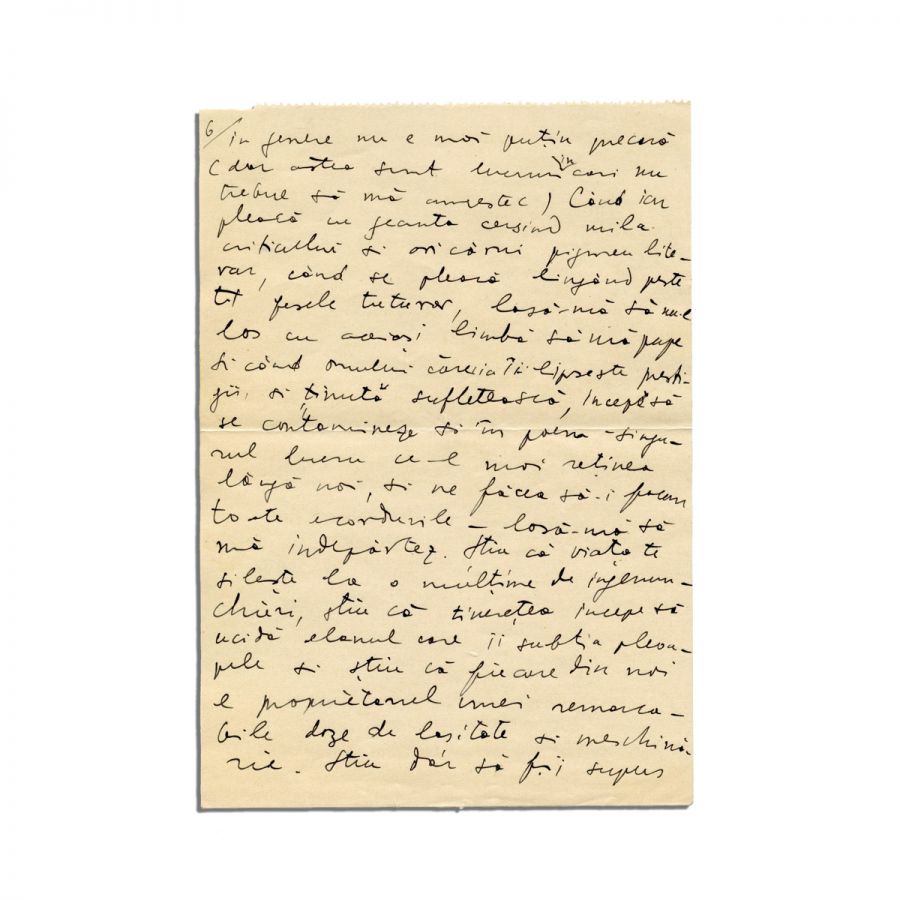 6/ in genere nu e mai puțin precară
(dar astea sunt lucruri în cari nu
trebue să mă amestec) Când ion
pleacă cu geanta cerșind mila
criticului si oricărui pigmeu lite-
rar, când se pleacă lingând peste
tt fesele tuturor, lasă-mă să nu-l
las cu aceiasi limbă să mă pupe
si când omului căreia îi lipsește presti-
giu, si ținută sufletească, începe să
se contamineze si în poem - singu-
rul lucru ce-l mai reținea
lângă noi, si ne făcea să-i facem
toate acordurile - lasă-mă să
mă indepărtez. Stiu că viata te
sileste la o mulțime de ingenun-
chieri, stiu că tinerețea incepe să
ucidă elanul care ii subția pleoa-
pele si știu că fiecare din noi
e proprietarul unei remarca-
bile doze de lasitate si meschină-
rie. Stiu dar să fii supus